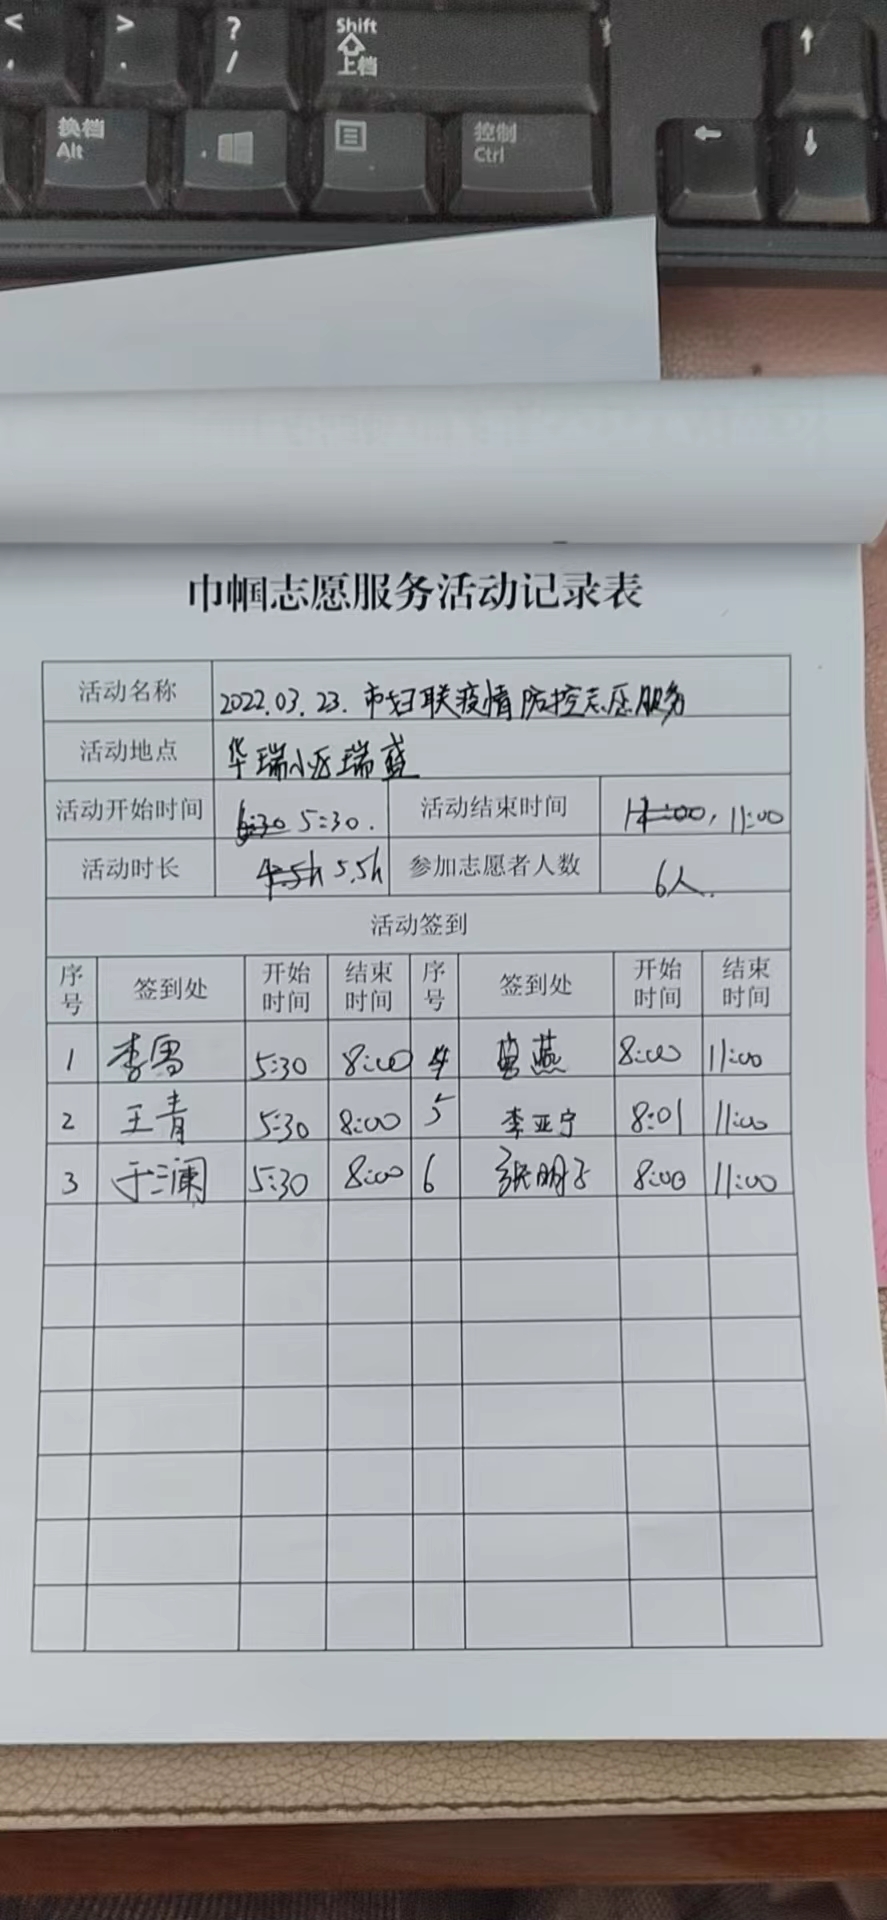 < > ? Shift
, . / 上档
换档 控制
Alt Ctrl
巾帼志愿服务活动记录表
活动名称 2022.03.23. 市妇联疫情防控志愿服务
活动地点 华瑞小区瑞盛
活动开始时间 6:30 5:30. 活动结束时间 11:00
活动时长 4.5h 5.5h 参加志愿者人数 6人.
活动签到
序号 签到处 开始时间 结束时间 序号 签到处 开始时间 结束时间
1 李雪 5:30 8:00 4 燕 8:00 11:00
2 王青 5:30 8:00 5 李亚宁 8:01 11:00
3 于澜 5:30 8:00 6 张明子 8:00 11:00